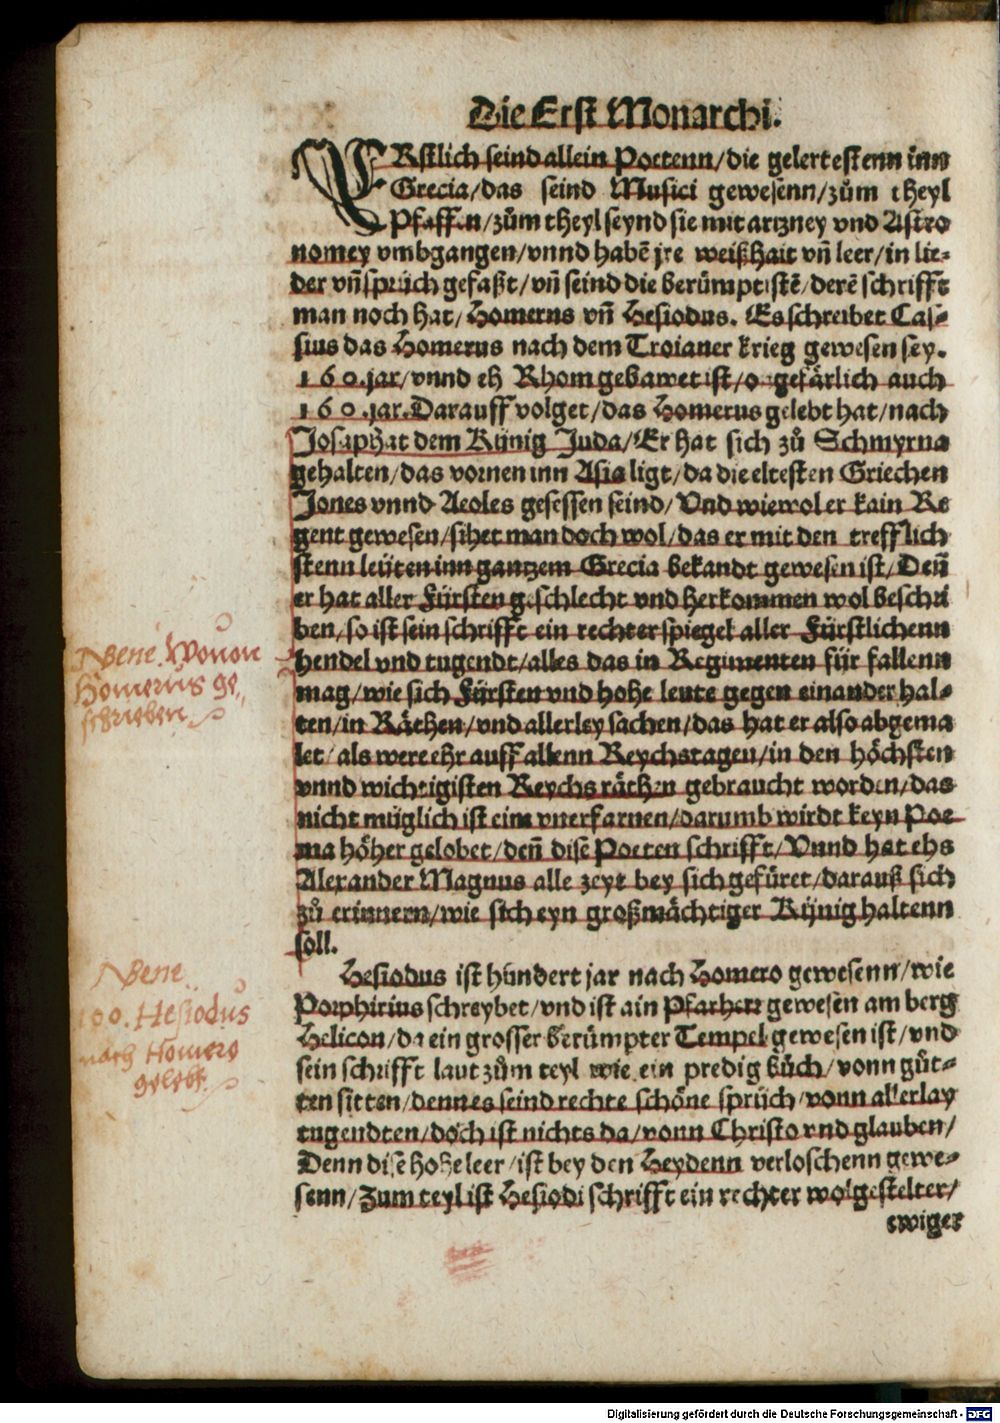 Die Erst Monarchi.
VRstlich seind allein Poetenn/die gelertestenn inn
Grecia/das seind Musici gewesenn/zům theyl
Pfaffen/zům theyl seynd sie mit artzney vnd Astro
nomey vmbgangen/vnnd habē jre weißhait vñ leer/in lie-
der vñ sprüch gefaßt/vñ seind die berümptistē/derē schrifft
man noch hat/Homerus vñ Hesiodus. Es schreibet Cas-
sius das Homerus nach dem Troianer krieg gewesen sey.
160.jar/vnnd eh Rhom gebawet ist/ogefärlich auch
160.jar.Darauff volget/das Homerus gelebt hat/nach
Josaphat dem Künig Juda/Er hat sich zů Schmyrna
gehalten/das vornen inn Asia ligt/da die eltesten Griechen
Jones vnnd Aeoles gesessen seind/Vnd wiewol er kain Re
gent gewesen/sihet man doch wol/das er mit den trefflich
stenn leüten inn gantzem Grecia bekandt gewesen ist/Deñ
er hat aller Fürsten geschlecht vnd herkommen wol beschri
ben/so ist sein schrifft ein rechter spiegel aller Fürstlichenn
hendel vnd tugendt/alles das in Regimenten für fallenn
mag/wie sich Fürsten vnd hohe leute gegen einander hal-
ten/in Rächen/vnd allerley sachen/das hat er also abgema
let/als were ehr auff allenn Reychstagen/in den höchsten
vnnd wichtigisten Reychs räthen gebraucht worden/das
nicht müglich ist eim vnerfarnen/darumb wirdt keyn Poe
ma höher gelobet/deñ disē Poeten schrifft/Vnnd hat ehs
Alexander Magnus alle zeyt bey sich gefüret/darauß sich
zů erinnern/wie sich eyn großmächtiger Künig haltenn
söll.
Nene. Wouon
Homerus ge-
schrieben
Hesiodus ist hundert jar nach Homero gewesenn/wie
Porphirius schreybet/vnd ist ain Pfarherr gewesen am berg
Helicon/da ein grosser berümpter Tempel gewesen ist/vnd
sein schrifft laut zům teyl wie ein predig bůch/vonn gůt-
ten sitten/dennes seind rechte schöne sprüch/vonn allerlay
tugendten/doch ist nichts da/vonn Christo vnd glauben/
Denn dise hohe leer/ist bey den Heydenn verloschenn gewe-
senn/Zum teyl ist Hesiodi schrifft ein rechter wolgestelter/
ewiger
Nene
100. Hesiodus
nach Homero
gelebt.
Digitalisierung gefördert durch die Deutsche Forschungsgemeinschaft - DFG